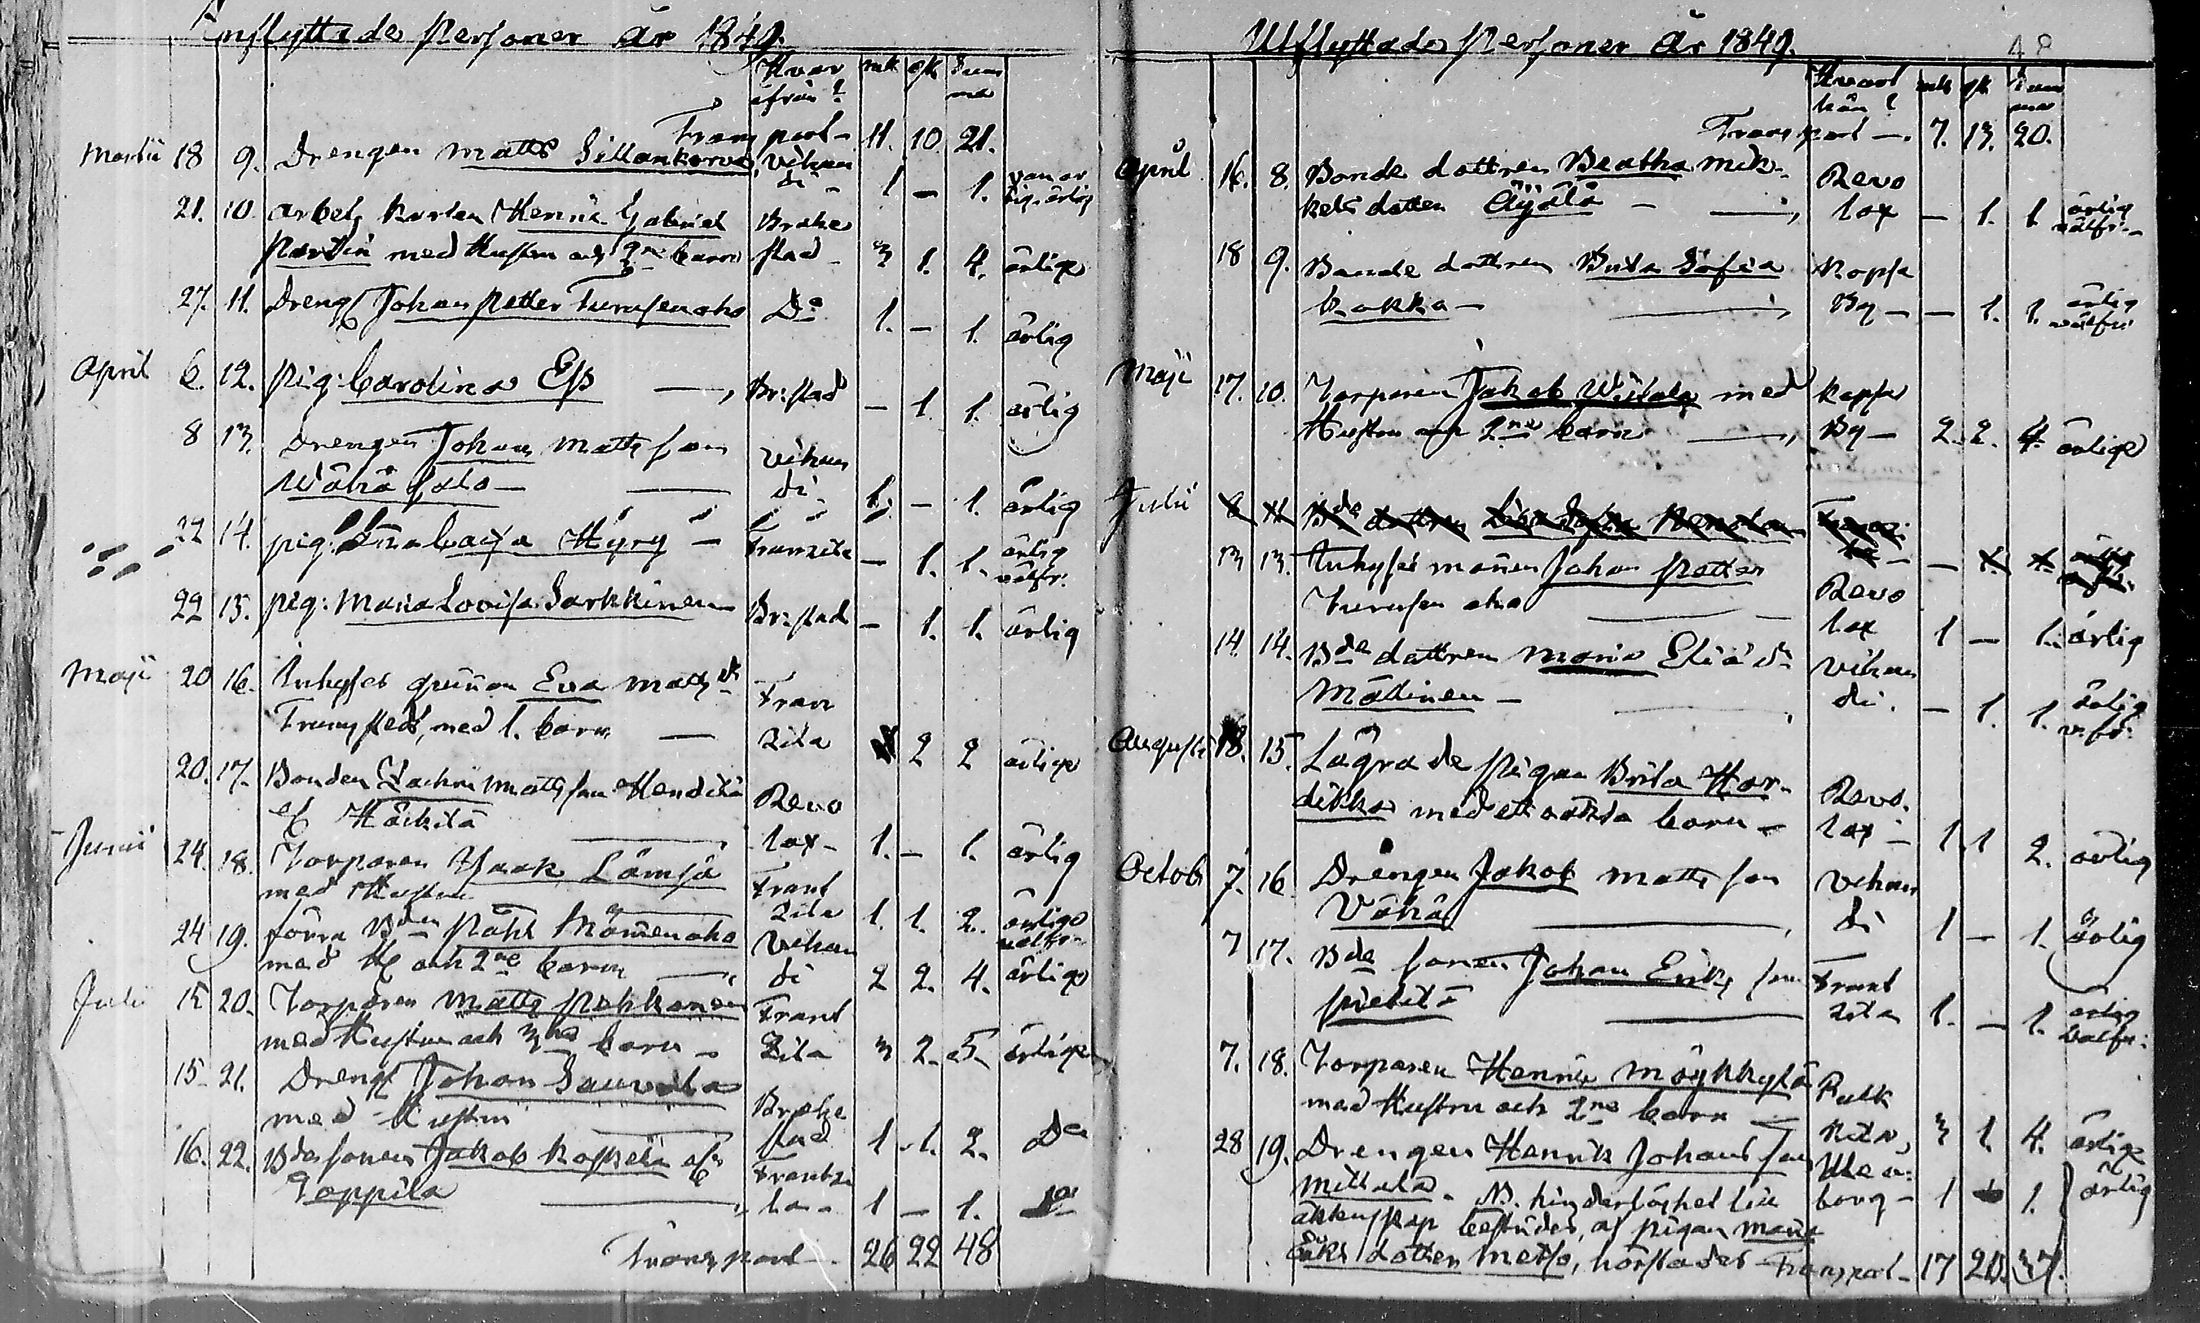 Inflyttade Personer År 1849.
Hvar ifrån? mk qk Summa
Transport - 11. 10. 21.
Martii 18 9. Drengen Matts Sillankorva Vihan
di - 1 - 1. ärlig
21. 10. Arbets Karlen Henric Gabriel Brahe
Pardin med Hustru och 2ne barn stad - 3 1. 4. ärlige
27. 11. Dreng Johan Petter Turusenaho Do 1. - 1. ärlig
April 6. 12. pig: Carolina Ess —, Br:stad - 1. 1. ärlig
8 13. Drengen Johan Matts son Vihan
Wähä salo - — di - 1. - 1. ärlig
22 14. pig: Hyry - Frantzila - 1. 1. ärlig
välfr:
22 15. pig: Maria Lovisa Sarkkinen Br:stad - 1. 1. ärlig
Maji 20 16. Inhyses qvinnan Eva Matts dr Fran
med 1. barn — zila 2 2 ärlige
20. 17. Bonden Zachris Matts son Revo
Häikiä — lax - 1. - 1. ärlig
Junii 24. 18. Torparen Isak Lämsä Frant
med Hustru zila 1. 1. 2. ärlige
välfr:
24 19. förra Bden Påhl Vihan
med H och 2ne barn —, di 2 2. 4. ärlige
Julii 15 20. Torparen Matts Pahkanen Frant
med Hustru och 3ne barn - Zila 3 2. 5. ärlige
15. 21. Dreng Johan Sauvola Brahe
med Hustru stad 1 - 1. 2. Do
16. 22. Bde sonen Jakob Koskela Frantzi
Toppila — la - 1 - 1. Do
Transport - 26 22 48
Utflyttade Personer År 1849. 48
Hvart hän? mk qk Summa
Transport - 7. 13. 20.
April 16. 8. Bonde dottren Beatha Mik- Revo
kels dotter Äÿälä - —, lax - 1. 1. ärlig
välfr: -
18 9. Bonde dottren Brita Sofia Kopsa
Kokko - —, By - - 1. 1. ärlig
välfr:
Maji 17. 10. Torparen Jakob med Kopsa
Hustru och 2ne barn —, By - 2. 2. 4. ärlige
Julii 8 11 Bde dottren
- 1. 1.
13 13. Inhyses mannen Johan Petter Revo
Turusen aho — lax 1 - 1. ärlig
14. 14. Bde dottren Maria Eliæ dr Vihan
Mätinen - — di. - 1. 1. ärlig
v.fr:
Augusti 18. 15. Lägrade pigan Brita Har- Revo.
dikka med ett oäkta barn - lax - 1. 1 2. ärlig
Octob 7. 16 Drengen Jakob Matts son Vihan
Vähä —, di 1 - 1. ärlig
7 17. Bde sonen Johan Eriks son Frant
Pietilä — zila 1. - 1. ärlig
välfr:
7. 18. Torparen Henric Möykkylä Pulk
med Hustru och 2ne barn - kila, 3 1. 4. ärlige
28 19. Drengen Henrik Johans son Uleå:
Mattila. NB. hinderlöshet till borg - 1 1. ärlig
äktenskap bestrides, af pigan Maria
Eriks dotter Metso, härstädes - Transport - 17 20. 37.